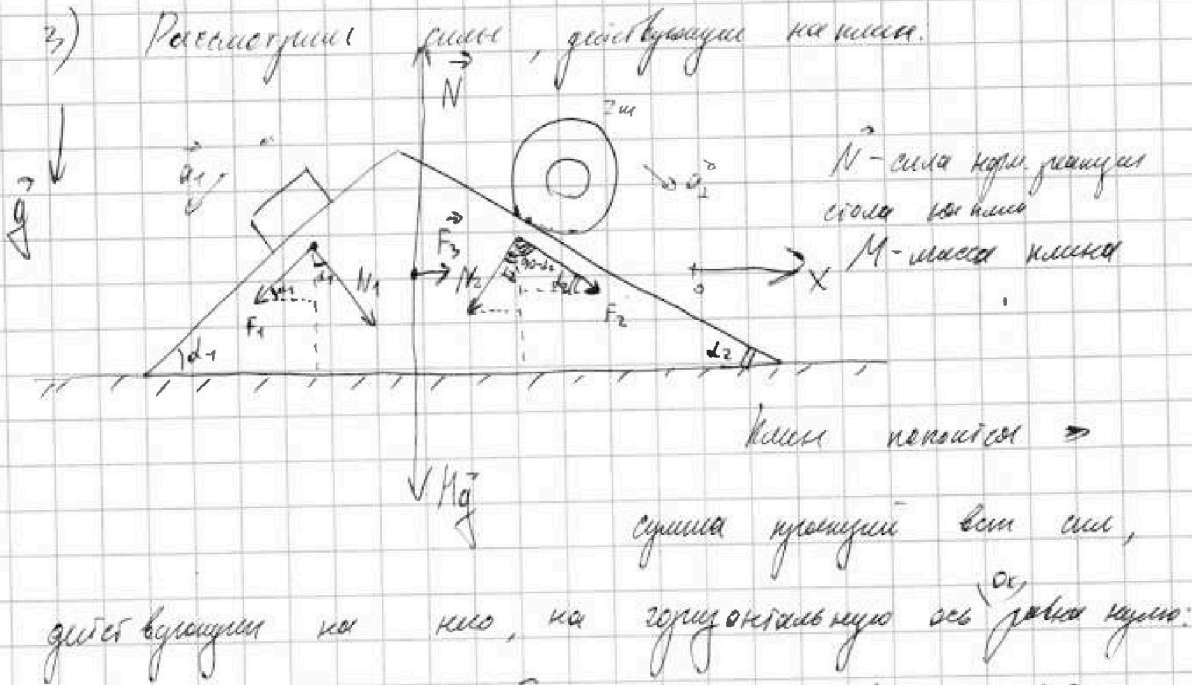 3) Рассмотрим силы, действующие на клин.
N
2m
g
a₁
a₂
N - сила норм. реакции
стола на клин
M - масса клина
F₃
0 X
α₁ N₁ N₂ α₂ 90-α₂ α₂
F₁ F₂
α₁ α₂
Клин покоится ⇒
Mg
сумма проекций всех сил,
действующих на него, на горизонтальную ось Ox, равна нулю: